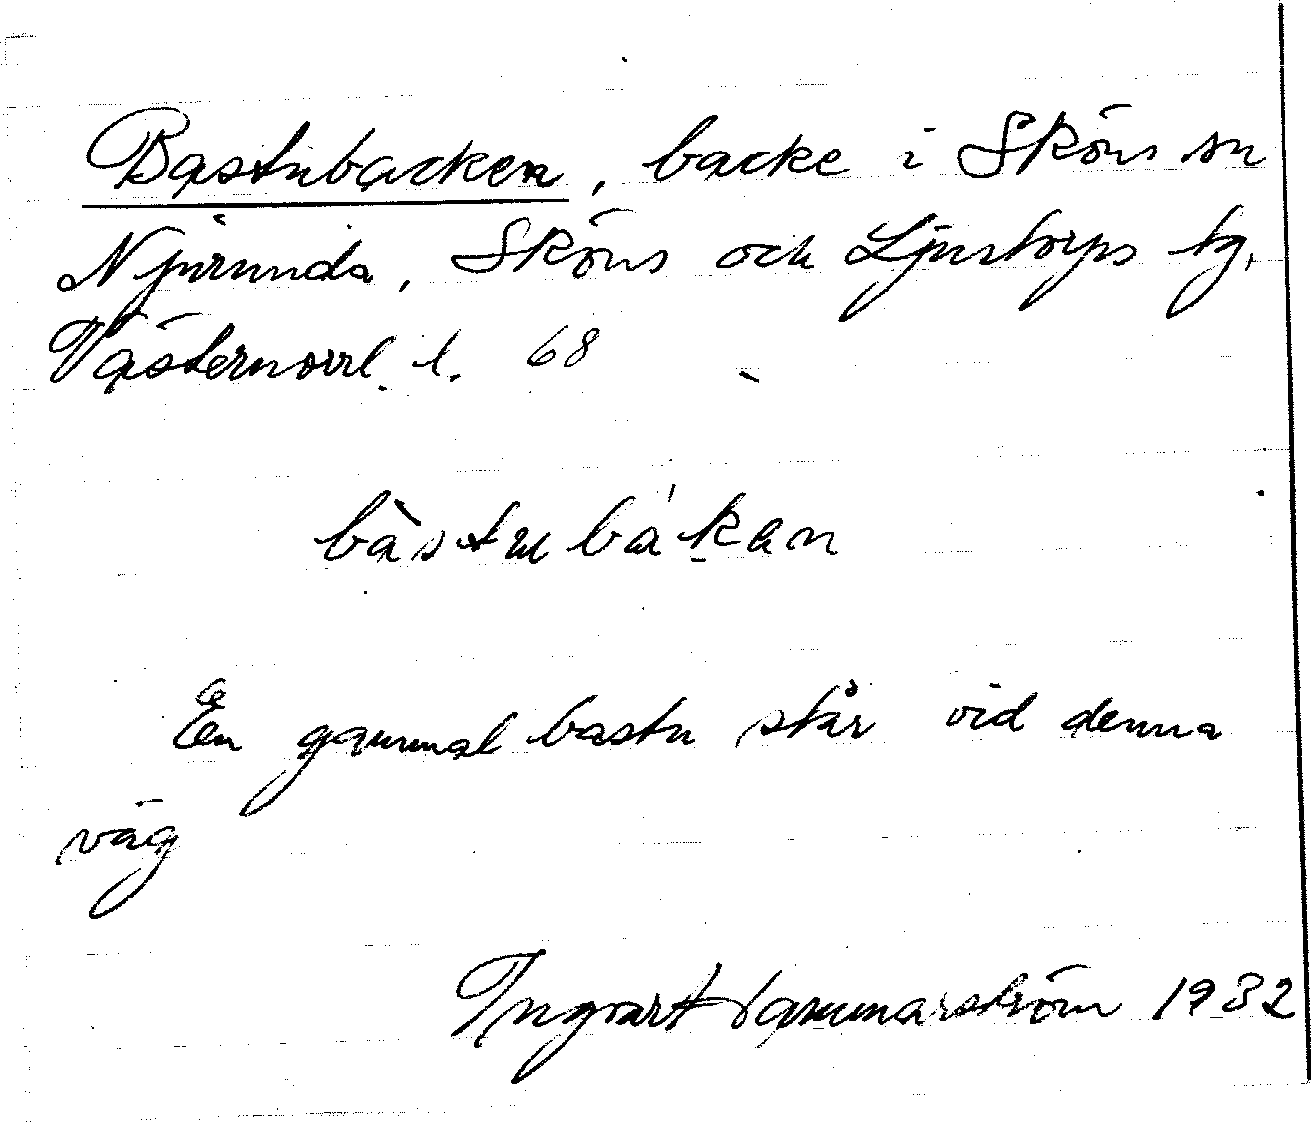 Bastubacken, backe i Sköns sn
Njurunda, Sköns och Ljustorps tg,
Västernorrl. l. 68
bàstubákan
En gammal bastu står vid denna
väg
Ingvar Hammarström 1932